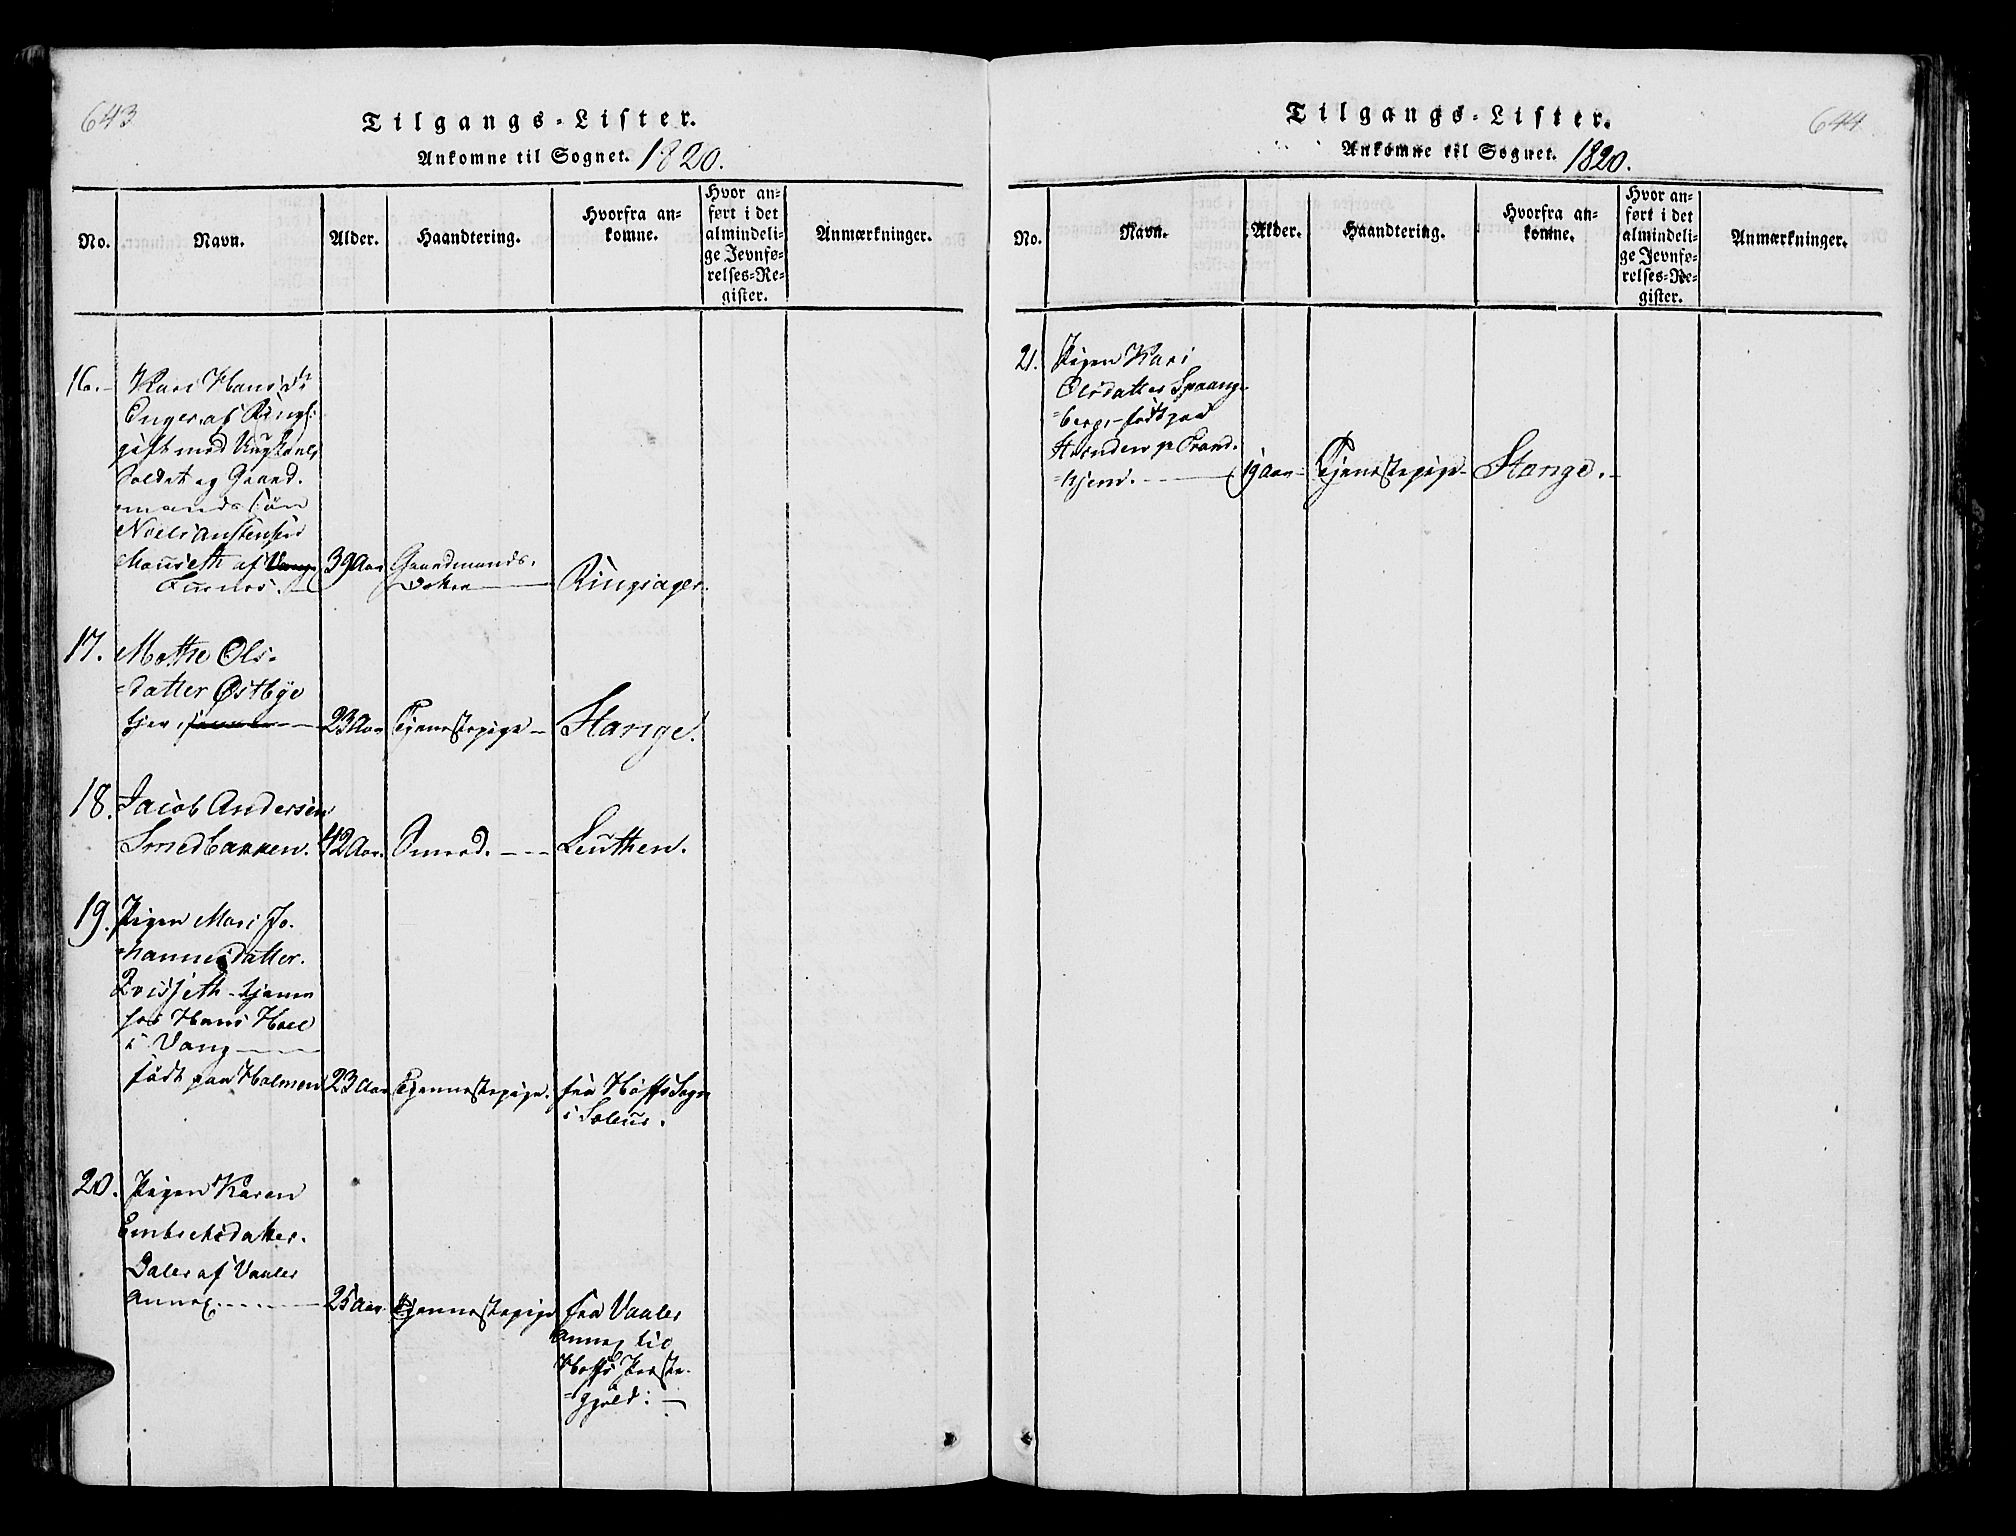 643
Tilgangs-Lister.
Ankomne til Sognet. 1820.
No.
Navn.
Alder.
Haandtering.
Hvorfra an-
komne.
Hvor an-
ført i det
almindeli-
ge Jevnfø-
relses-Re-
gister.
Anmærkninger.
16.
Kari Hansd:
Enger af Rings:
gift med
Soldat og Gaard-
mandssøn
Niels Austensen
af Vang
Furnes.
39 Aar
Gaardmands-
Ringsager.
17.
Mathe Ols-
datter Østbye
tjen.
23 Aar
Tjenestepige
Stange.
18.
Jacob Andersen
Smedbakken.
42 Aar.
Smed.
Leuthen.
19.
Pigen Mari Jo-
hannesdatter
tjener
hos Hans Hoel
i Vang
født paa Holmen
23 Aar
Tjenestepige.
fra Hoffs Sogn
i Soløer.
20.
Pigen Karen
Embrechtsdatter
Daler af Vaaler
Annex.
25 Aar
Tjenestepige
fra Vaaler
Annex til
Hoffs Præste-
gjeld.
644
Tilgangs-Lister.
Ankomne til Sognet. 1820.
No.
Navn.
Alder.
Haandtering.
Hvorfra an-
komne.
Hvor an-
ført i det
almindeli-
ge Jevnfø-
relses-Re-
gister.
Anmærkninger.
21.
Pigen Kari
Olsdatter Spaang-
berg født paa
Trond-
hjem.
19 Aar
Tjenestepige
Stange.